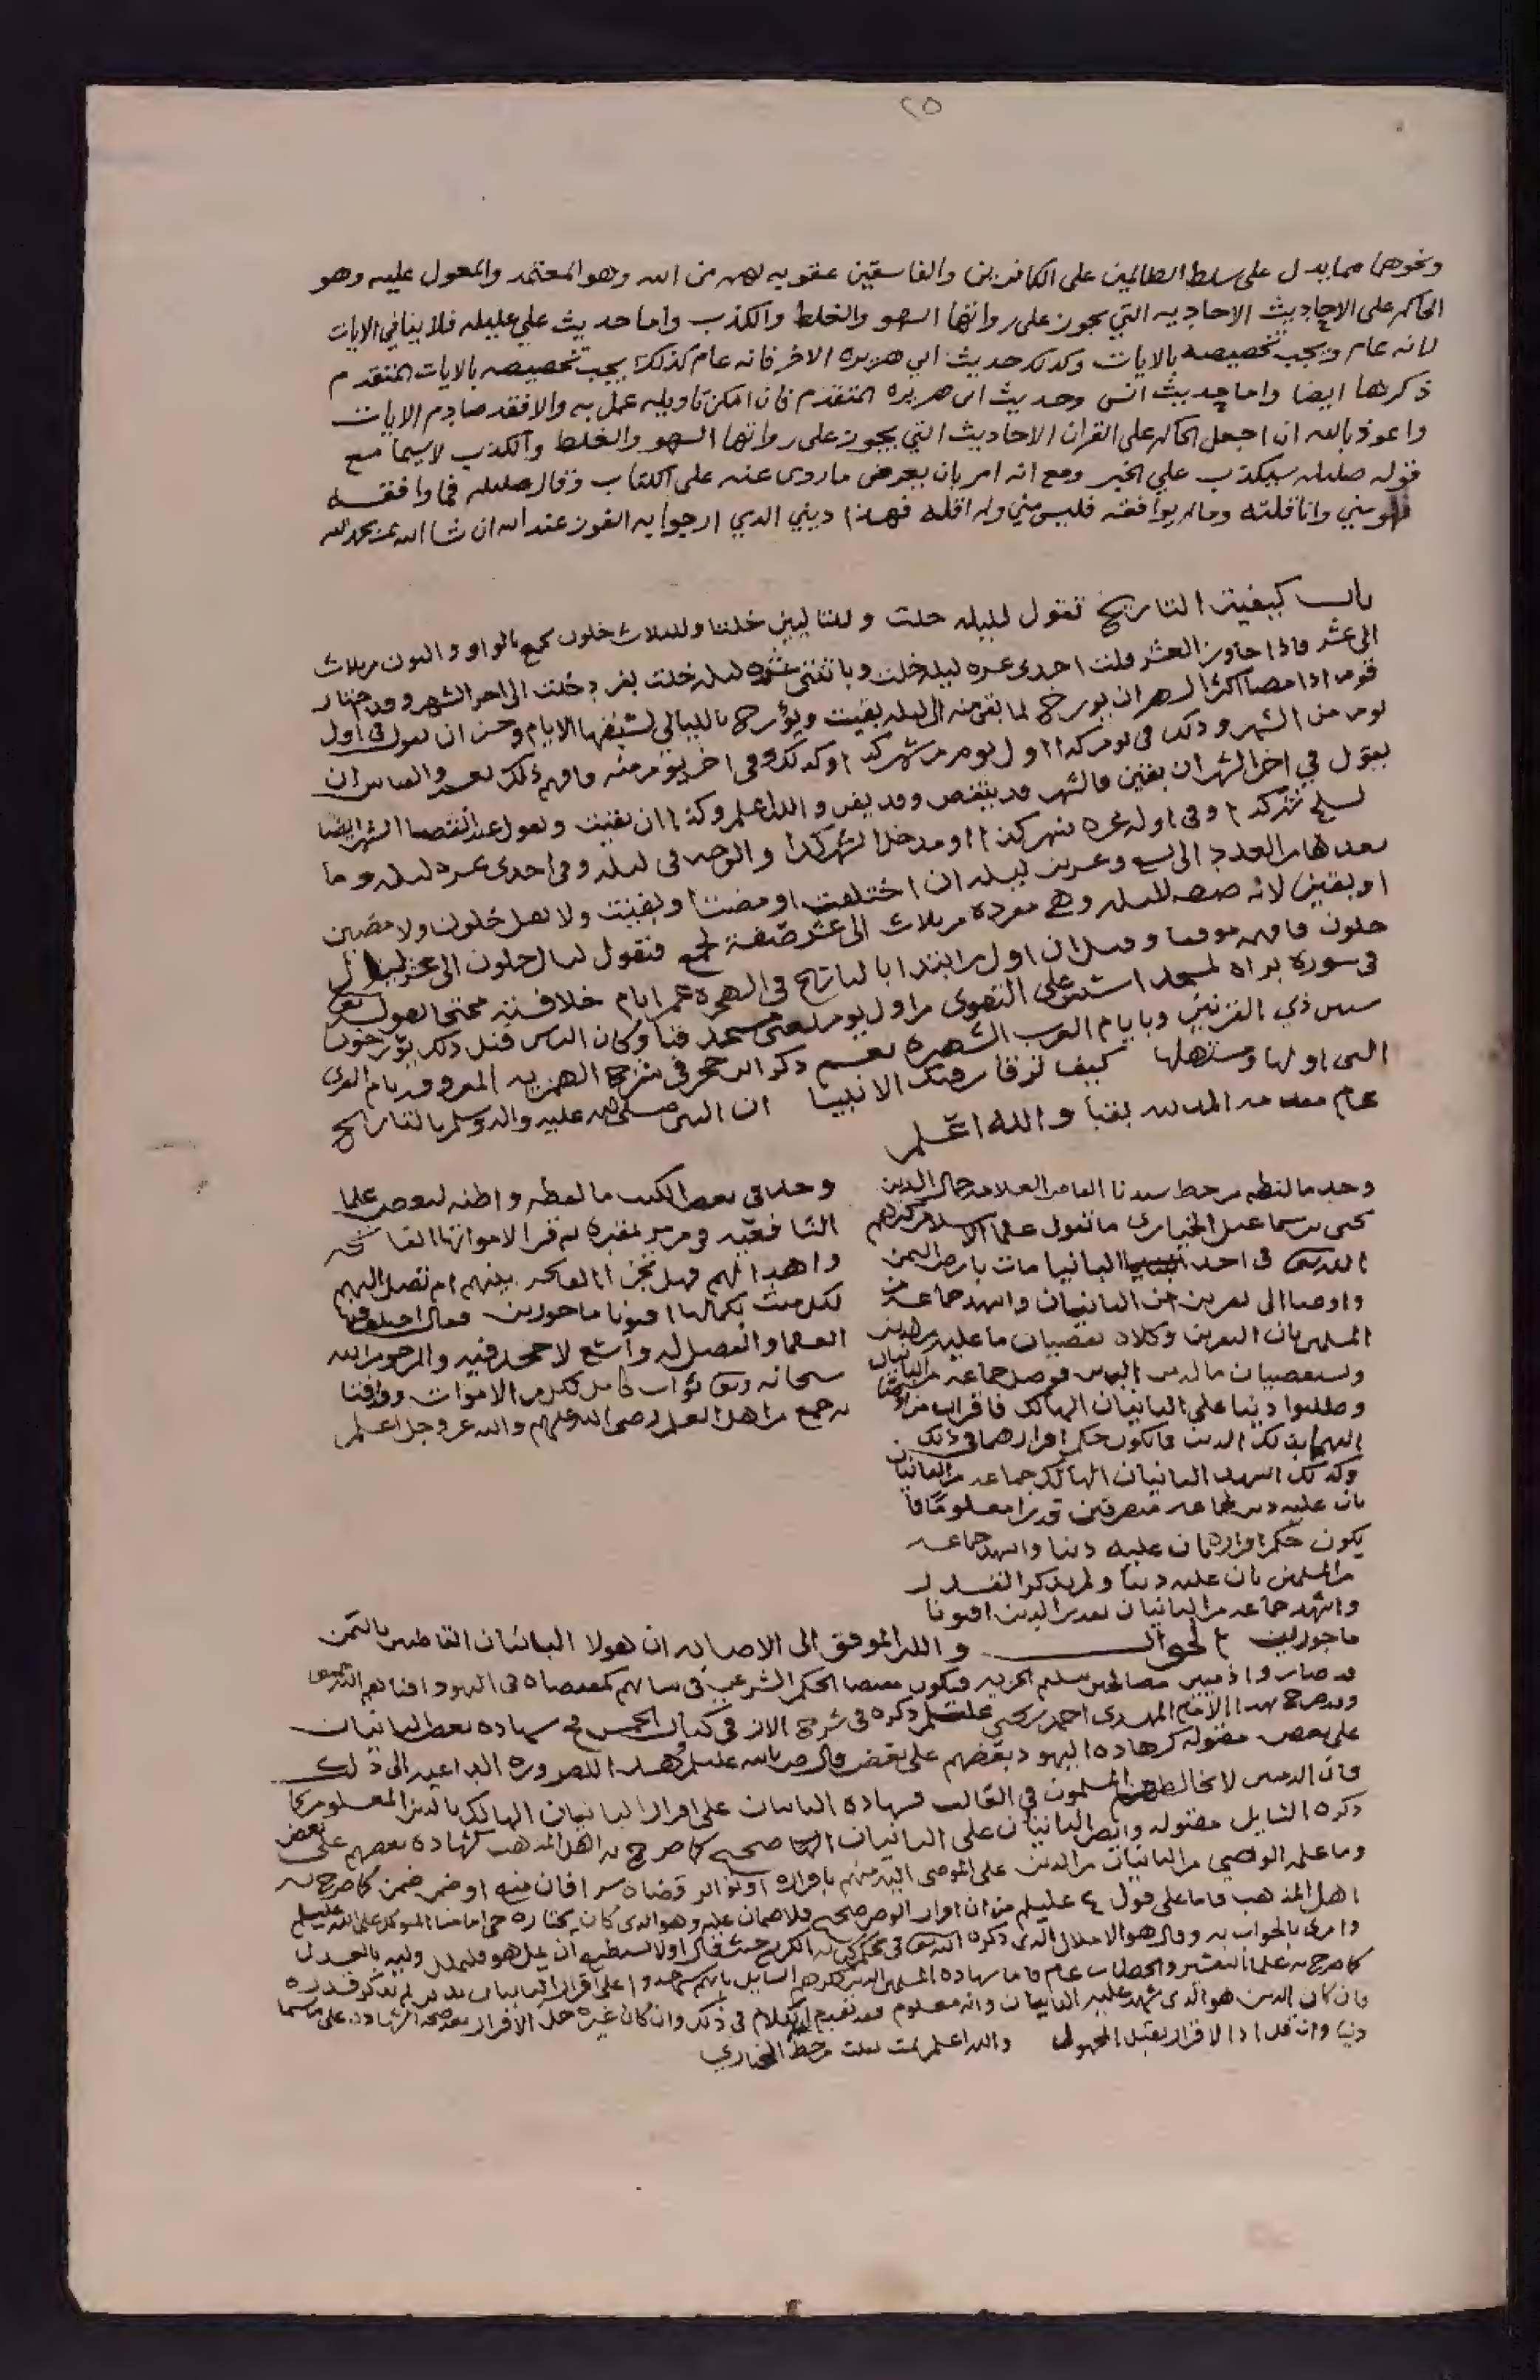 ٢٥
ونحوها مما يدل على سلط الظالمين على الكافرين والفاسقين عقوبه لهم من الله وهو المعتمد والمعول عليه وهو
الحاكم على الاحاديث الاحاديه التي يجوز على رواتها السهو والغلط والكذب واما حديث علي عليلم فلا ينافي الايات
لانه عام ويجب تخصيصه بالايات وكذلك حديث ابي هريره الاخر فانه عام كذلك يجب تخصيصه بالايات المتقدم
ذكرها ايضا واما حديث انس وحديث ابي هريره المتقدم فان امكن تاويله عمل به والا فقد صادم الايات
واعوذ بالله ان اجعل الحاكم على القران الاحاديث التي يجوز على رواتها السهو والغلط والكذب لاسيما مع
قوله صللم سيكذب علي الخبر ومع انه امر بان يعرض ما روى عنه على الكتاب وقال صللم فما وافقه
فهو مني وانا قلته وما لم يوافقه فليس مني ولم اقله فهذا ديني الذي ارجوا به الفوز عند الله ان شا الله
باب كيفية التاريخ تقول لليله خلت ولليلتين خلتا ولثلاث خلون بجمع بالواو والنون من ثلاث
الى عشر فاذا جاوز العشر قلت احدى عشره ليله خلت وباثنتي عشره ليله خلت بفرد خلت الى اخر الشهر وقد اختار
قوم اذا مضا اكثر الشهر ان يورخ لما بقي منه الى ليله بقيت ويؤرخ بالليالي لسبقها الايام وحسن ان تقول في اول
يوم من الشهر وذلك في يوم كذا اول يوم من شهر كذا وكذلك وفي اخر يوم منه فافهم ذلك
يقول في اخر الشهر ان بقين فالشهر قد ينقص وقد يفي والله اعلم وكذا ان بقيت وتقول عند انقضا الشهر ايضا
لسلخ شهر كذا وفي اوله غره شهر كذا او مدخل شهر كذا
بعدها من العدد الى تسع وعشرين ليله ان اختلفت او مضت او بقيت ولا تقل خلون ولا مضين
او بقين لانه صفه لليله وهي مفرده من ثلاث الى عشر صفة لجمع فتقول لثلاث خلون الى عشر ليال
خلون فافهم موفقا وقيل ان اول من ابتدا بالتاريخ في الهجره عمر ايام خلافته محتجا بقوله تعالى
في سورة براه لمسجد اسس على التقوى من اول يوم يعني مسجد قبا وكان الناس قبل ذلك يؤرخون
سنين ذي القرنين وبايام العرب الشهيره نعم ذكر ابن حجر في شرح الهمزيه المعروفه بام القرى
التي اولها ومستهلها كيف ترقا رقيك الانبيا ان النبي صلى الله عليه واله وسلم بالتاريخ
عام مقدمه المدينه بقبا والله اعلم
وجد ما لفظه من خط سيدنا القاضي العلامه جمال الدين
يحيى بن اسماعيل الجباري ما تقول علما الاسلام كثرهم
الله تعالى في احد البانيان مات بارض اليمن
واوصا الى نفرين من البانيان واشهد جماعه من
المسلمين بان النفرين وكلاه يقضيان ما عليه من الدين
ويستقضيان ماله من الناس فوصل جماعه من البانيان
وطلبوا دينا على البانيان الهالك فاقر
اليهما بذلك الدين فما يكون حكم اقرارهما في ذلك
وكذلك اشهد البانيان الهالك جماعه من البانيان
بان عليه دين لجماعه متفرقين قدرا معلوما فما
يكون حكم اقراره بان عليه دينا واشهد جماعه
من المسلمين بان عليه دينا ولم يذكر القدر
واشهد جماعه من البانيان بقدر الدين افتونا
ماجورين
وجد في بعض الكتب ما لفظه واظنه لبعض علما
الشافعيه في من مر بمقبره ثم قرا لامواتها الفاتحه
واهدا لهم فهل تجزا الفاتحه بينهم ام تصل اليهم
لكل ميت بكمالها افتونا ماجورين فقال اختلف فيها
العلما والفضل لله واسع لا حجر فيه والمرجو من الله
سبحانه وتعالى ثواب كامل لكل من الاموات ووافقنا
به جمع من اهل العلم رضي الله عنهم والله عز وجل اعلم
الجواب والله الموفق الى الاصابه ان هولا البانيان القاطنين باليمن
قد صاروا ذميين مصالحين بتسليم الجزيه فيكون مقتضا الحكم الشرعي في شانهم كمقتضاه في اليهود
وقد صرح بهذا الامام المهدي احمد بن يحيى عليلم ذكره في شرح الاثمار في كتاب الخمس في شهاده بعض البانيان
على بعض مقبوله كشهاده اليهود بعضهم على بعض قال وهذا للضروره الداعيه الى ذلك
فان الذميين لا يخالطهم المسلمون في الغالب فشهاده البانيان على اقرار البانيان الهالك بالدين المعلوم كما
ذكره السايل مقبوله وايصا البانيان على البانيان صحيح كما صرح به اهل المذهب كشهاده بعضهم على بعض
وما علمه الوصي من البانيان من الدين على الموصي اليه منهم باقراره او نحوه قضاه سرا فان منع او ضمن ضمن كما صرح به
اهل المذهب فاما على قول م عليلم من ان اقرار الوصي صحيح فلا ضمان عليه وهو الذي كان يختاره حي امامنا المتوكل على الله عليلم
وامرني بالجواب به وقال هو الاملال الذي ذكره الله تعالى في محكم كتابه الكريم حيث قال او لا يستطيع ان يمل هو فليملل وليه بالعدل
كما صرح به علما التفسير والخطاب عام فاما شهاده المسلمين الذين ذكرهم السايل بانهم شهدوا على اقرار البانيان بدين لم يذكر قدره
فان كان الدين هو الذي شهد عليه البانيان وانه معلوم فقد تقدم الكلام في ذلك وان كان غيره حل الاقرار بعد صحة الشهاده على ما يسما
دينا وان قل اذ الاقرار يقبل المجهول والله اعلم تمت نقلت من خط الجباري